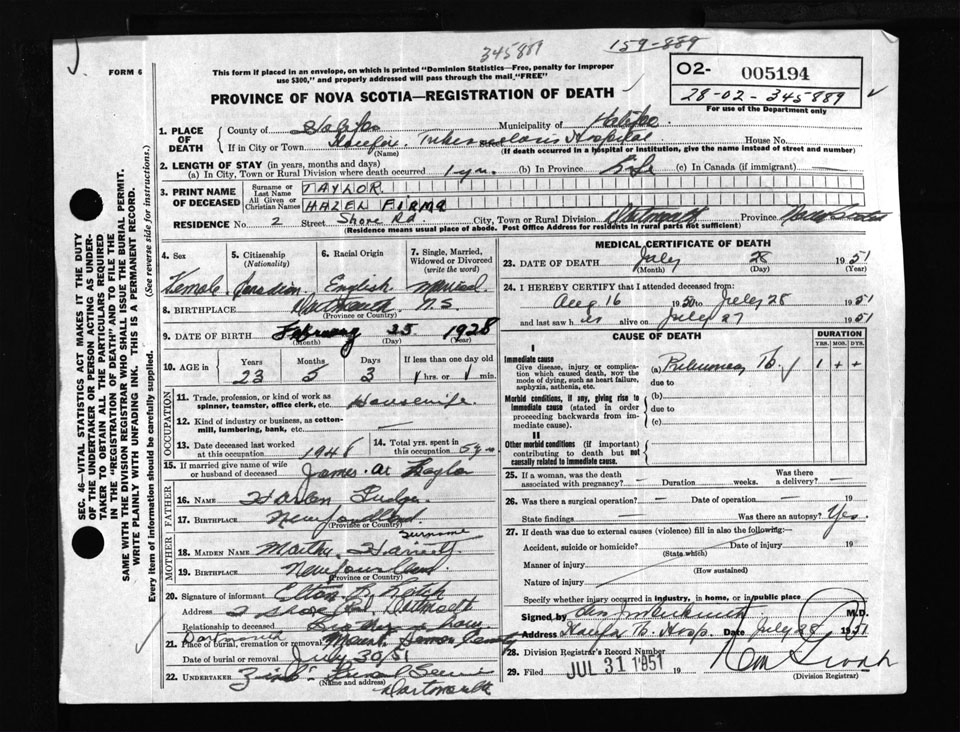 FORM 6
345889
159-889
This form if placed in an envelope, on which is printed "Dominion Statistics—Free, penalty for improper
use $300," and properly addressed will pass through the mail "FREE"
O2- 005194
28-02-345889
For use of the Department only
PROVINCE OF NOVA SCOTIA—REGISTRATION OF DEATH
1. PLACE OF DEATH
County of Halifax Municipality of Halifax
If in City or Town Halifax Tuberculosis Hospital House No.
(Name) (If death occurred in a hospital or institution, give the name instead of street and number)
2. LENGTH OF STAY (in years, months and days)
(a) In City, Town or Rural Division where death occurred 1 yr. (b) In Province Life (c) In Canada (if immigrant)
3. PRINT NAME OF DECEASED
Surname or Last Name TAYLOR
All Given or Christian Names HAZEL
RESIDENCE No. 2 Street Shore Rd. City, Town or Rural Division Dartmouth Province Nova Scotia
(Residence means usual place of abode. Post Office Address for residents in rural parts not sufficient)
4. Sex 5. Citizenship (Nationality) 6. Racial Origin 7. Single, Married, Widowed or Divorced (write the word)
Female Canadian English Married
8. BIRTHPLACE Dartmouth N.S.
(Province or Country)
9. DATE OF BIRTH February 25 1928
(Month) (Day) (Year)
10. AGE in Years Months Days If less than one day old
23 5 3 hrs. or min.
OCCUPATION
11. Trade, profession, or kind of work as
spinner, teamster, office clerk, etc. Housewife
12. Kind of industry or business, as cotton-
mill, lumbering, bank, etc. —
13. Date deceased last worked
at this occupation 1948
14. Total yrs. spent in
this occupation 5 yrs
15. If married give name of wife
or husband of deceased James Taylor
FATHER
16. NAME Harlen
17. BIRTHPLACE Newfoundland
(Province or Country)
Surname
MOTHER
18. MAIDEN NAME Martha
19. BIRTHPLACE Newfoundland
(Province or Country)
20. Signature of informant Elton
Address 2 Shore Rd. Dartmouth
Relationship to deceased Brother in law
21. Place of burial, cremation or removal Dartmouth Mount
Date of burial or removal July 30/51
22. UNDERTAKER Funeral Service
(Name and address)
Dartmouth
MEDICAL CERTIFICATE OF DEATH
23. DATE OF DEATH July 28 1951
(Month) (Day) (Year)
24. I HEREBY CERTIFY that I attended deceased from:
Aug 16 1950 to July 28 1951
and last saw h er alive on July 27 1951
CAUSE OF DEATH
DURATION
YRS. MOS. DYS.
I
Immediate cause
Give disease, injury or complica-
tion which caused death, NOT the
mode of dying, such as heart failure,
asphyxia, asthenia, etc.
(a) Pulmonary Tb. 1 + +
due to
Morbid conditions, if any, giving rise to
immediate cause (stated in order
proceeding backwards from imme-
diate cause).
(b)
due to
(c)
II
Other morbid conditions (if important)
contributing to death but not
causally related to immediate cause.
25. If a woman, was the death
associated with pregnancy? — Duration weeks. Was there
a delivery? —
26. Was there a surgical operation? — Date of operation 19
State findings — Was there an autopsy? Yes.
27. If death was due to external causes (violence) fill in also the following:
Accident, suicide or homicide? Date of injury 19
(State which)
Manner of injury
(How sustained)
Nature of injury
Specify whether injury occurred in industry, in home, or in public place
Signed by M.D.
Address Halifax Tb. Hosp. Date July 28 1951
28. Division Registrar's Record Number
29. Filed JUL 31 1951 19
(Division Registrar)
SEC. 46—VITAL STATISTICS ACT MAKES IT THE DUTY
OF THE UNDERTAKER OR PERSON ACTING AS UNDER-
TAKER TO OBTAIN ALL THE PARTICULARS REQUIRED
IN THE "REGISTRATION OF DEATH" AND TO FILE THE
SAME WITH THE DIVISION REGISTRAR WHO SHALL ISSUE THE BURIAL PERMIT.
WRITE PLAINLY WITH UNFADING INK. THIS IS A PERMANENT RECORD.
Every item of information should be carefully supplied. (See reverse side for instructions.)